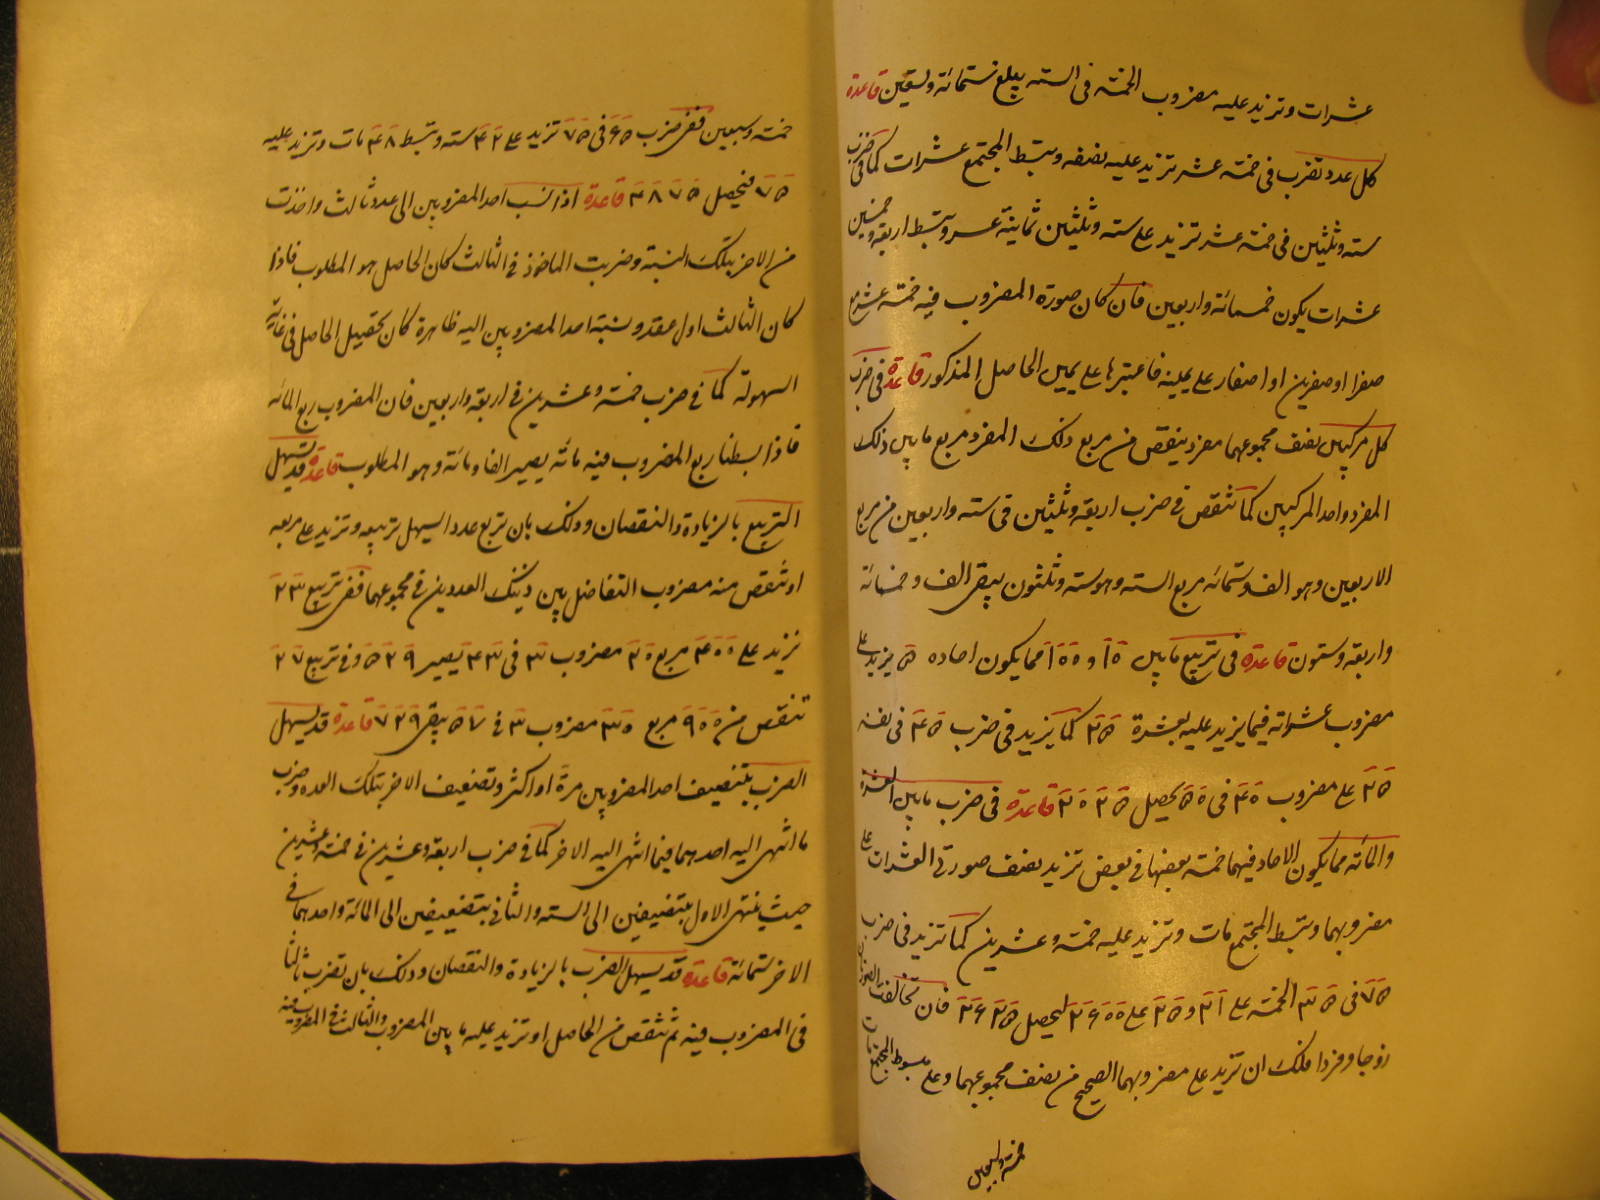 عشرات وتزيد عليه مضروب الخمسة فى الستة يبلغ ستمائة وتسعين قاعدة
كل عدد تضرب فى خمسة عشر تزيد عليه نصفه وتبسط المجتمع عشرات كما فى ضرب
ستة وثلثين فى خمسة عشر تزيد على ستة وثلثين ثمانية عشر وتبسط اربعة وخمسين
عشرات يكون خمسمائة واربعين فان كان صورة المضروب فيه خمسة عشر مع
صفرا او صفرين او اصفار على يمينه فاعتبرها على يمين الحاصل المذكور قاعدة فى ضرب
كل مركبين نصف مجموعهما مفرد ينقص من مربع ذلك المفرد مربع ما بين ذلك
المفرد واحد المركبين كما تنقص فى ضرب اربعة وثلثين فى ستة واربعين من مربع
الاربعين وهو الف وستمائه مربع الستة وهو ستة وثلثون يبقى الف وخمسمائة
واربعة وستون قاعدة فى تربيع ما بين ١٥ و ١٥٥ مما يكون احاده ۵ يزيد على
مضروب عشراته فيما يزيد عليه بعشرة ٢۵ كما يزيد فى ضرب ۴۵ فى نفسه
٢۵ على مضروب ۴٥ فى ۵٥ يحصل ٢٥٢۵ قاعدة فى ضرب ما بين العشرة
والمائة مما يكون الاحاد فيهما خمسة بعضها فى بعض تزيد نصف صورتى العشرات على
مضروبهما وتبسط المجتمع مات وتزيد عليه خمسة وعشرين كما تزيد فى ضرب
٧۵ فى ٣۵ الخمسة على ٢١ و ٢۵ على ٢۶٥٥ ليحصل ٢۶٢۵ فان تخالفت الصورتان
زوجا وفردا فلك ان تزيد على مضروبهما الصحيح من نصف مجموعهما وعلى مبسوط المجتمع مات
خمسة وسبعين
خمسة وسبعين ففى ضرب ۶۵ فى ٧۵ تزيد على ۴٢ ستة وتبسط ۴٨ مات وتزيد عليه
٧۵ فيحصل ۴٨٧۵ قاعدة اذا نسب احد المضروبين الى عدد ثالث واخذت
من الاخر بتلك النسبة وضربت الماخوذ فى الثالث كان الحاصل هو المطلوب فاذا
كان الثالث اول عقد ونسبة احد المضروبين اليه ظاهرة كان تحصيل الحاصل فى غاية
السهولة كما فى ضرب خمسة وعشرين فى اربعة واربعين فان المضروب ربع المائه
فاذا بسطنا ربع المضروب فيه مائة يصير الفا ومائة وهو المطلوب قاعدة قد يسهل
التربيع بالزيادة والنقصان وذلك بان تربع عدد السهل تربيعه وتزيد على مربعه
او تنقص منه مضروب التفاضل بين ذينك العددين فى مجموعهما ففى تربيع ٢٣
نزيد على ۴٥٥ مربع ٢٥ مضروب ٣ فى ۴٣ يصير ۵٢٩ وفى تربيع ٢٧
تنقص من ٩٥٥ مربع ٣٥ مضروب ٣ فى ۵٧ يبقى ٧٢٩ قاعدة قد يسهل
الضرب بتنصيف احد المضروبين مرة او اكثر وتضعيف الاخر بتلك العدة وضرب
ما انتهى اليه احدهما فيما انتهى اليه الاخر كما فى ضرب اربعة وعشرين فى خمسة وعشرين
حيث ينتهى الاول بتنصيفين الى الستة والثانى بتضعيفين الى المائة واحدهما فى
الاخر ستمائة قاعدة قد يسهل الضرب بالزيادة والنقصان وذلك بان تضرب ثالثا
فى المضروب فيه ثم تنقص من الحاصل او تزيد عليه ما بين المضروب والثالث فى المضروب فيه